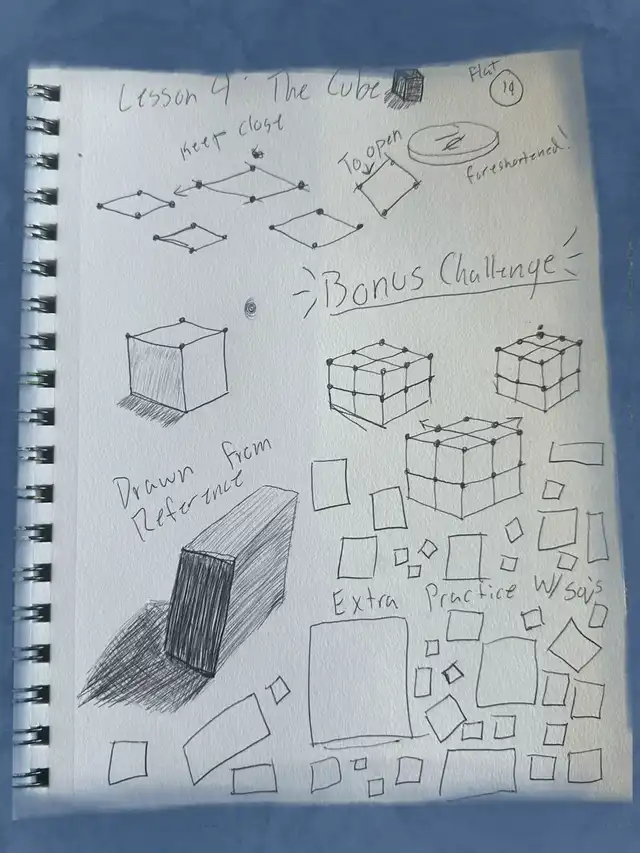 Lesson 4: The Cube
Flat
14
Keep close
To open
foreshortened!
Bonus Challenge
Drawn from
Reference
Extra Practice w/ sq's